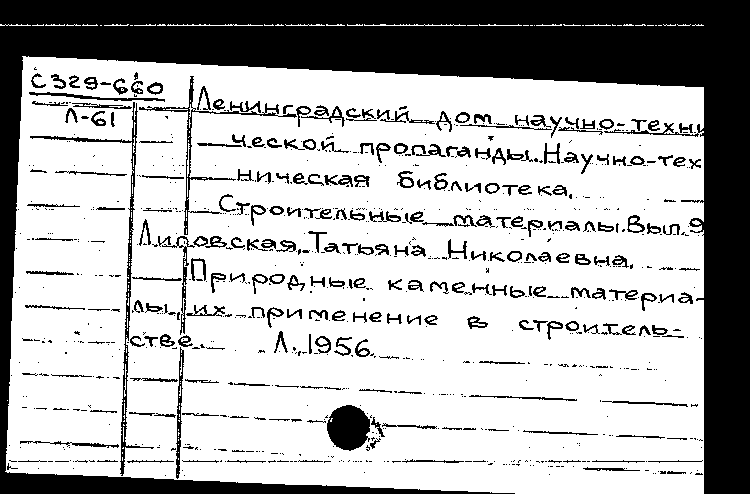 С329-660
Л-61
Ленинградский дом научно-техни
ческой пропаганды. Научно-тех
ническая библиотека.
Строительные материалы. Вып. 9
Липовская, Татьяна Николаевна.
Природные каменные материа-
лы, их применение в строитель-
стве. Л., 1956